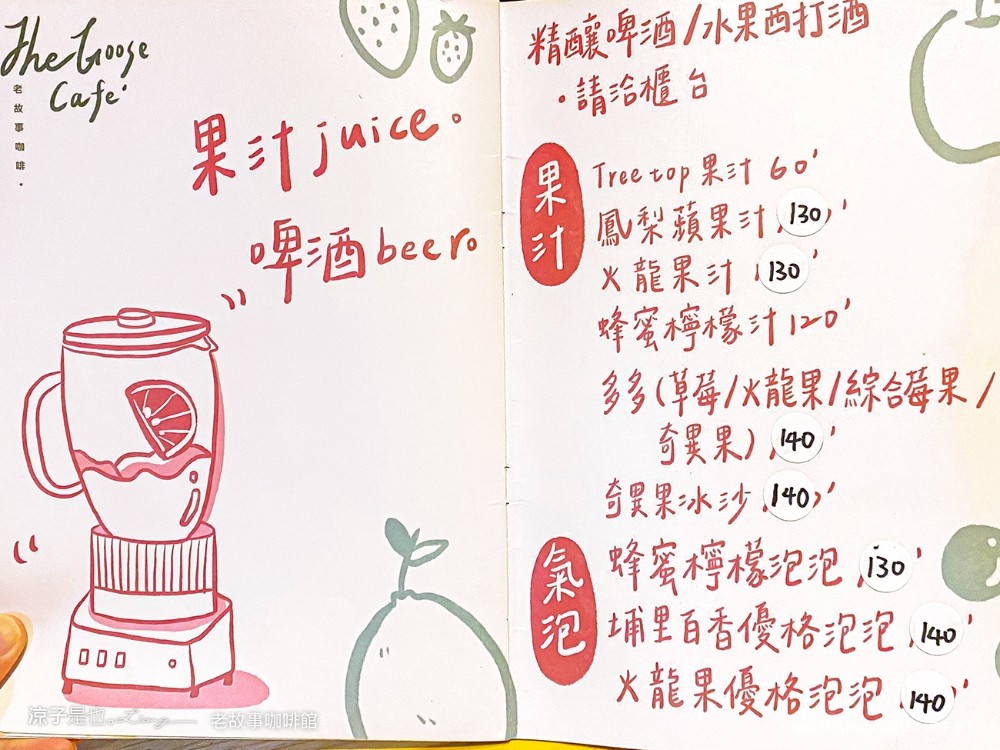 The Goose
Cafe'
老故事咖啡.
果汁juice.
啤酒beer.
精釀啤酒/水果西打酒
·請洽櫃台
果汁
Treetop果汁 60'
鳳梨蘋果汁 130'
火龍果汁 130'
蜂蜜檸檬汁120'
多多(草莓/火龍果/綜合莓果/
奇異果) 140'
奇異果冰沙 140'
氣泡
蜂蜜檸檬泡泡 130'
埔里百香優格泡泡 140'
火龍果優格泡泡 140'
涼子是也 老故事咖啡館